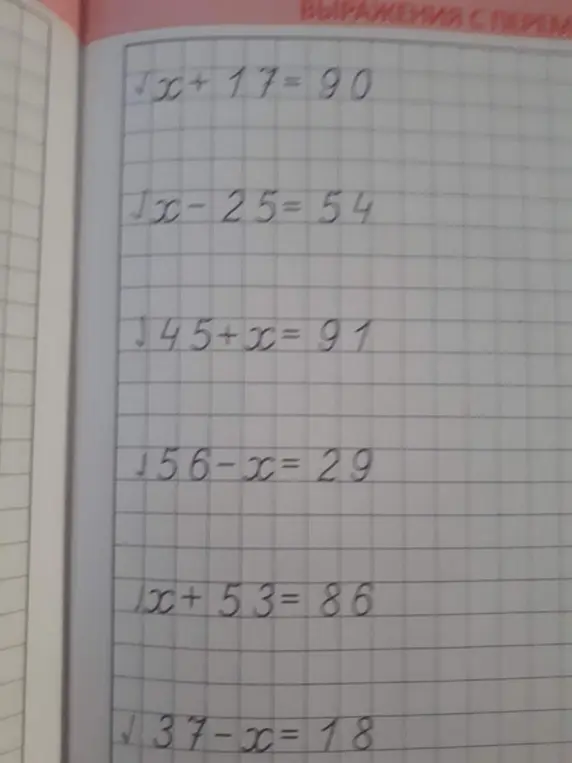 ВЫРАЖЕНИЯ С ПЕРЕМ
x + 17 = 90
x - 25 = 54
45 + x = 91
56 - x = 29
x + 53 = 86
37 - x = 18